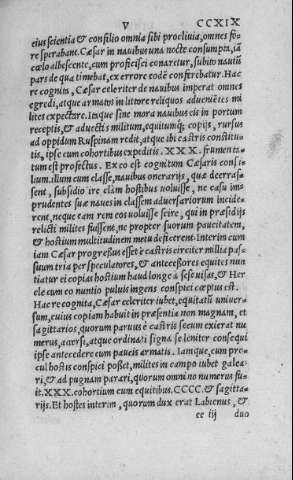 V CCXIX
eius scientia & consilio omnia sibi procliuia, omnes fo⸗
re sperabant. Cæsar in nauibus una nocte consumpta, iã
cœlo albescente, cum proficisci conaretur, subito nauiũ
pars de qua timebat, ex errore eodẽ conferebatur. Hac
re cognita, Cæsar celeriter de nauibus imperat omnes
egredi, atque armatos in litore reliquos aduenẽtes mi
lites expectare. Itaque sine mora nauibus eis in portum
receptis, & aduectis militum, equitumq; copijs, rursus
ad oppidum Ruspinam redit, atque ibi castris constitu⸗
tis, ipse cum cohortibus expeditis .XXX. frumenta⸗
tum est profectus. Ex eo est cognitum Cæsaris consi
lium. illum cum classe, nauibus onerarijs, quæ deerras⸗
sent, subsidio ire clam hostibus uoluisse, ne casu im⸗
prudentes suæ naues in classem aduersariorum incide⸗
rent, neque eam rem eos uoluisse scire, qui in præsidijs
relicti milites fuissent, ne propter suorum paucitatem,
& hostium multitudinem metu deficerent. Interim cum
iam Cæsar progressus esset è castris circiter millia pas⸗
suum tria per speculatores, & antecessores equites nun
tiatur ei copias hostium haud longè à se se uisas, & Her
cle cum eo nuntio puluis ingens conspici cœptus est.
Hac re cognita, Cæsar celeriter iubet, equitatũ uniuer⸗
sum, cuius copiam habuit in præsentia non magnam, et
sagittarios, quorum paruus è castris secum exierat nu
merus, accersi, atque ordinari signa se leniter consequi
ipse antecedere cum paucis armatis. Iamque, cum pro⸗
cul hostis conspici posset, milites in campo iubet galea⸗
ri, & ad pugnam parari, quorum omnino numerus fu⸗
it .XXX. cohortium cum equitibus .CCCC. & sagitta⸗
rijs. Et hostes interim, quorum dux erat Labienus, &
ee iij duo